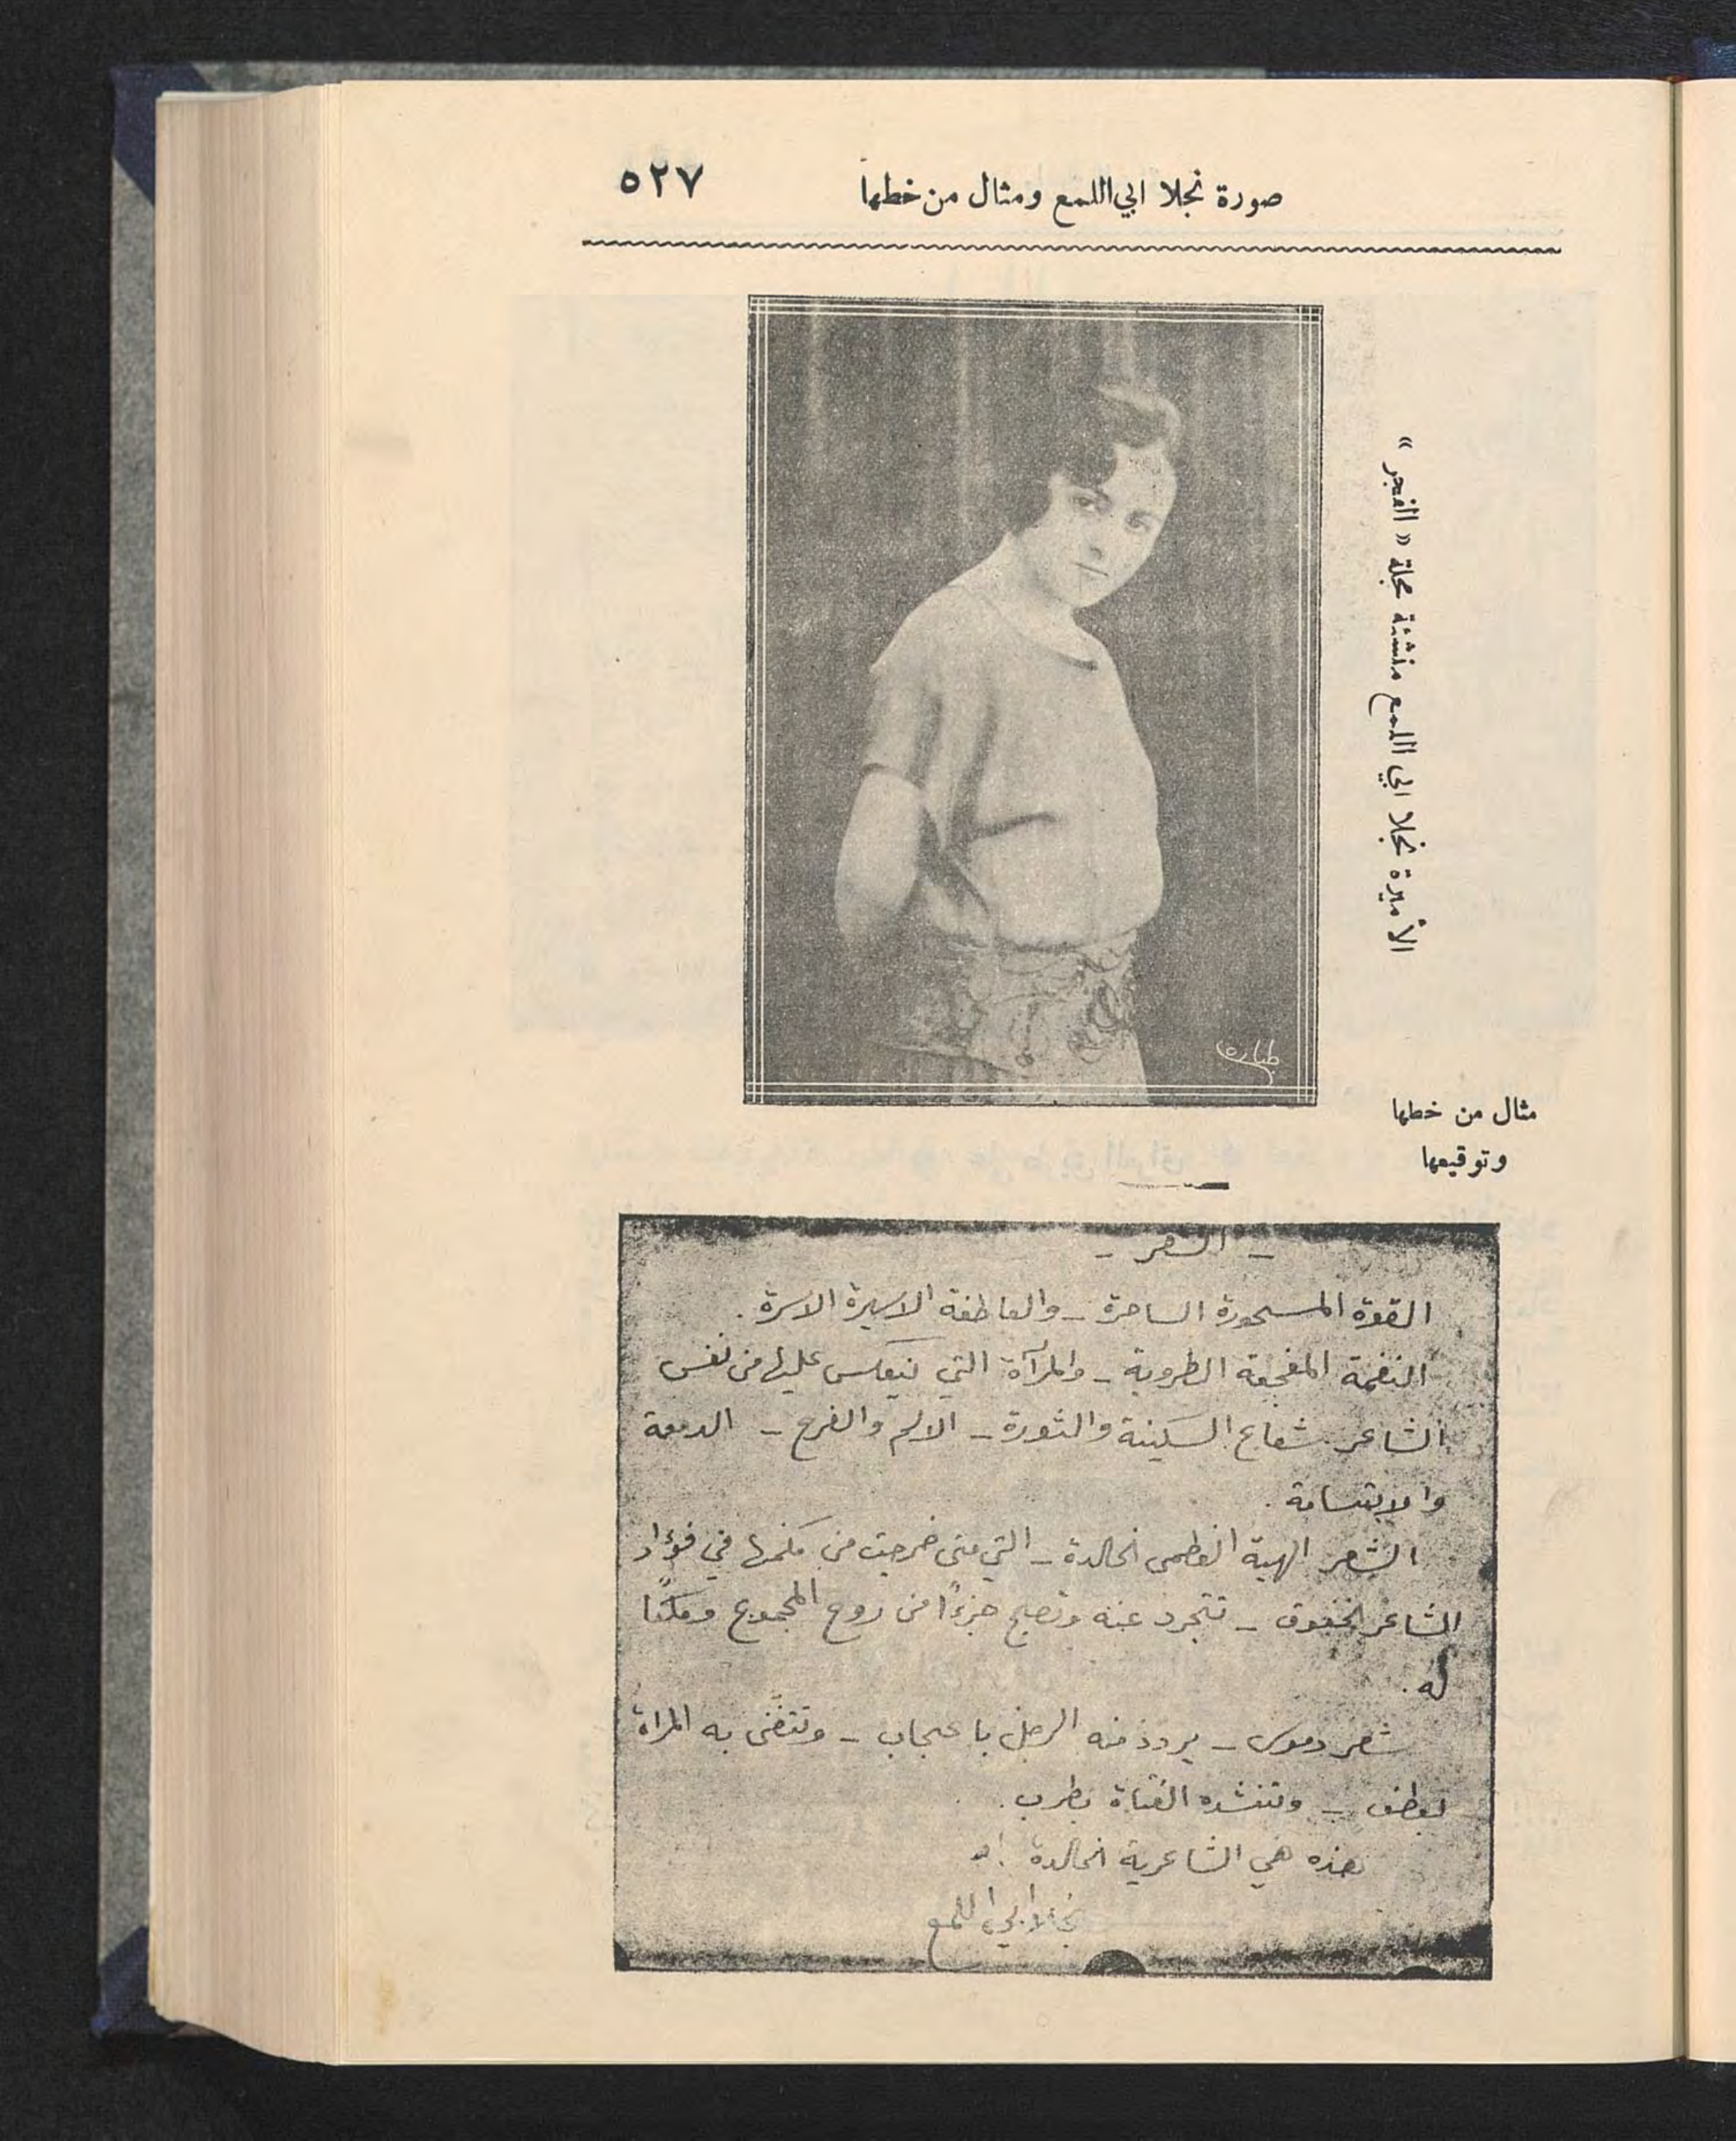 صورة نجلا ابي اللمع ومثال من خطها ٥٢٧
الأميرة نجلا ابي اللمع منشئة مجلة « الفجر »
طباره
مثال من خطها
وتوقيعها
– الشعر –
القوة المسحورة الساحرة – والعاطفة الاسيرة الاسرة .
النغمة المفجعة الطروبة – والمرآة التي ينعكس عليها من نفس
الشاعر شعاع السكينة والثورة – الالم والفرح – الدمعة
والابتسامة .
الشعر الهبة العظمى الخالدة – التي متى خرجت من مكمنها في فؤاد
الشاعر الخفوق – تتجرد عنه وتصبح جزءًا من روح المجموع وملكًا
له .
شعر – الرجل باعجاب – وتتغنى به المراة
بعطف – وتنشده الفتاة بطرب .
هذه هي الشاعرية الخالدة !
نجلا ابي اللمع